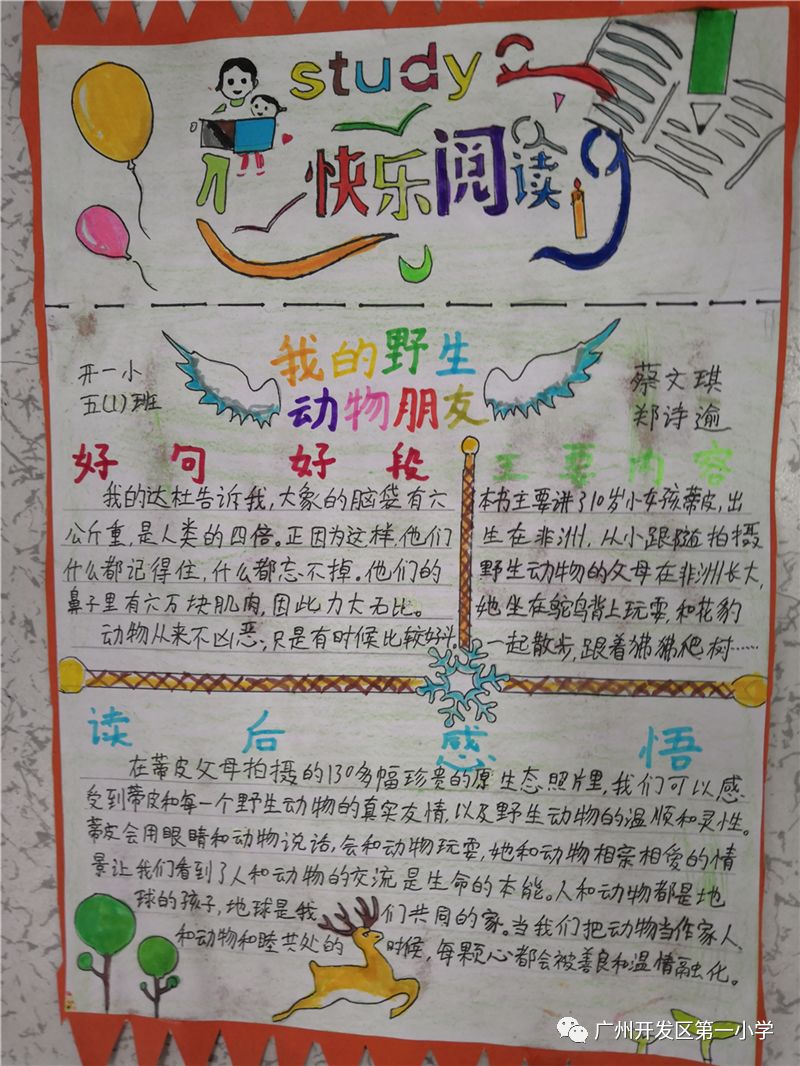 study
快乐阅读
我的野生
动物朋友
开一小
五(1)班
蔡文琪
郑诗逾
好句好段
我的达杜告诉我,大象的脑袋有六
公斤重,是人类的四倍。正因为这样,他们
什么都记得住,什么都忘不掉。他们的
鼻子里有六万块肌肉,因此力大无比。
动物从来不凶恶,只是有时候比较好斗。
主要内容
本书主要讲了10岁小女孩蒂皮,出
生在非洲,从小跟随拍摄
野生动物的父母在非洲长大,
她坐在鸵鸟背上玩耍,和花豹
一起散步,跟着狒狒爬树……
读后感悟
在蒂皮父母拍摄的130多幅珍贵的原生态照片里,我们可以感
受到蒂皮和每一个野生动物的真实友情,以及野生动物的温顺和灵性。
蒂皮会用眼睛和动物说话,会和动物玩耍,她和动物相亲相爱的情
景让我们看到了人和动物的交流是生命的本能。人和动物都是地
球的孩子,地球是我们共同的家。当我们把动物当作家人、
和动物和睦共处的时候,每颗心都会被善良和温情融化。
广州开发区第一小学